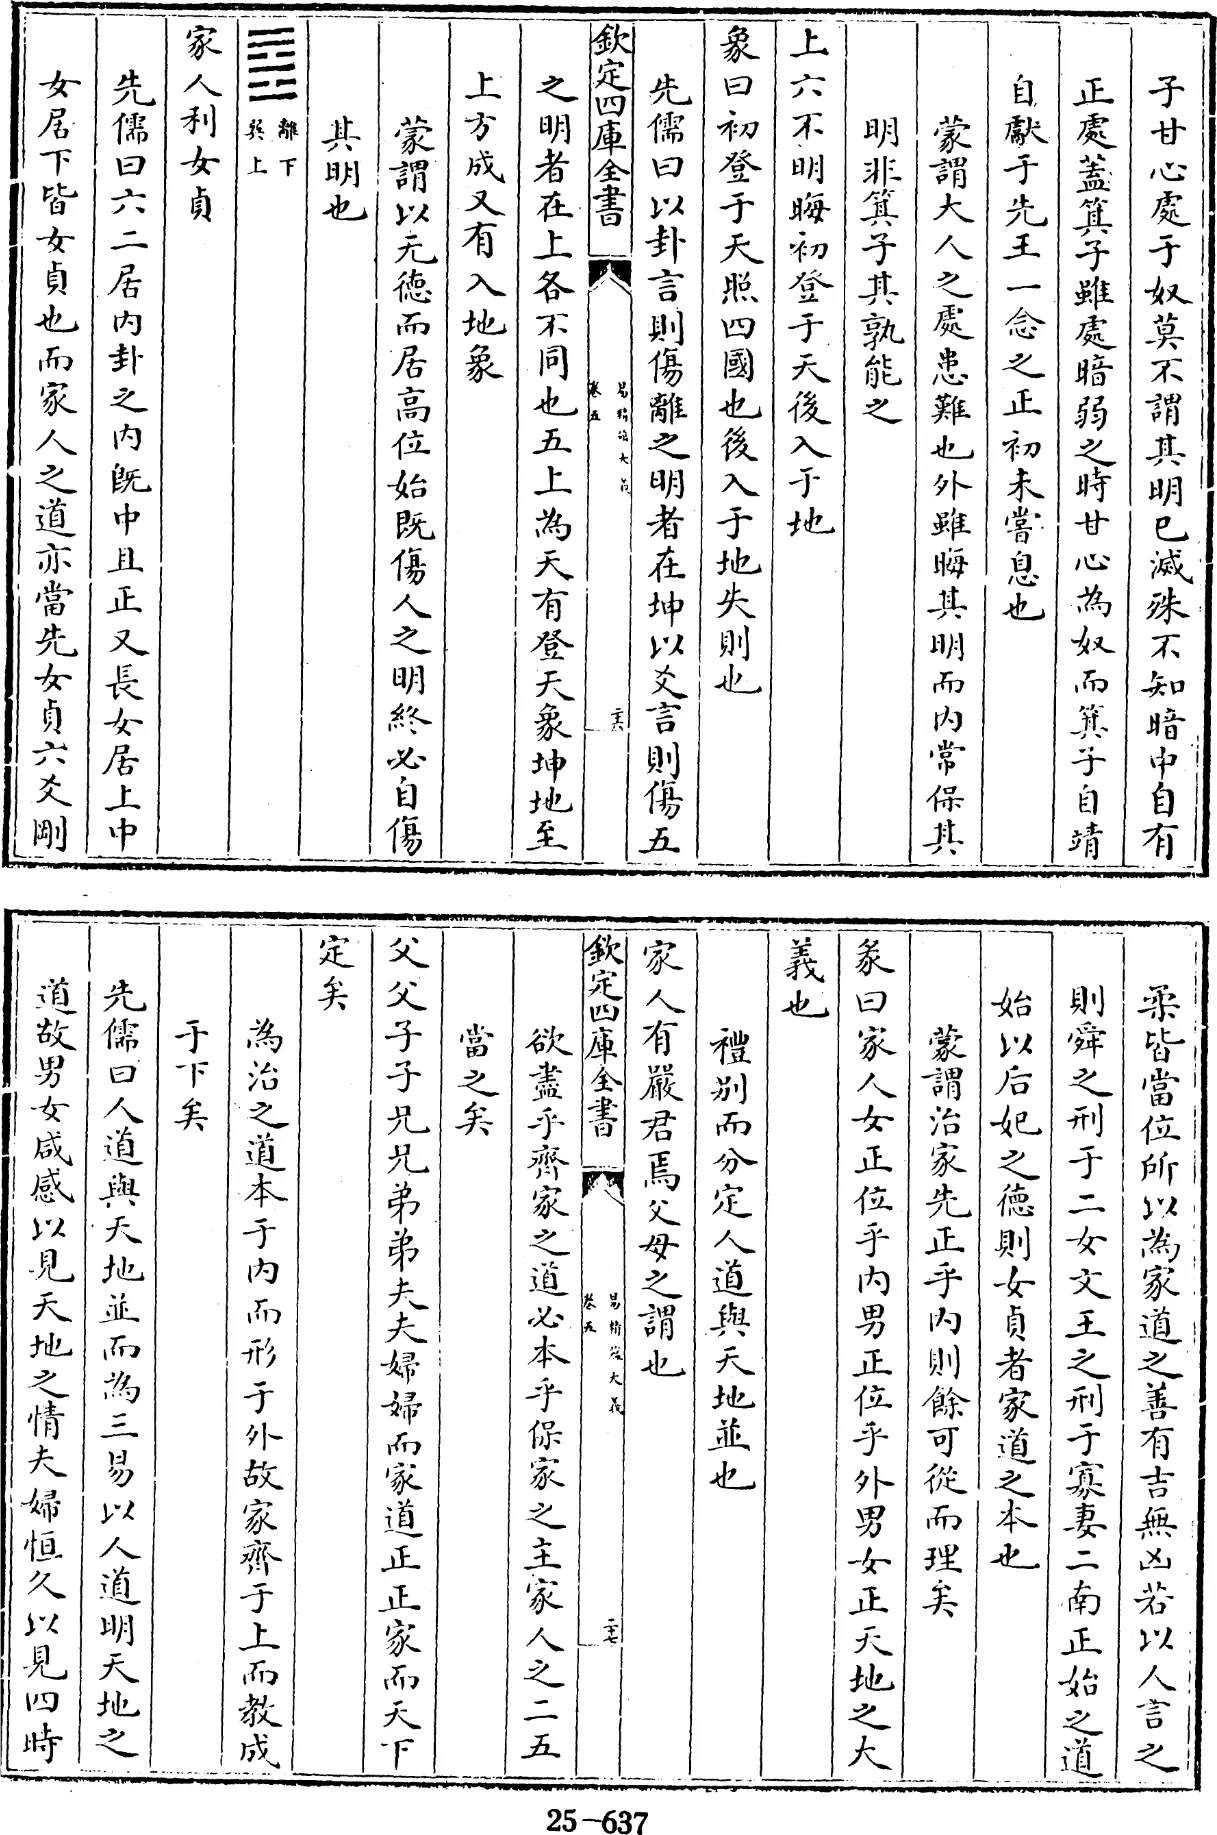 子甘心處于奴莫不謂其明已滅殊不知暗中自有
正處蓋箕子雖處暗弱之時甘心為奴而箕子自靖
自獻于先王一念之正初未嘗息也
蒙謂大人之處患難也外雖晦其明而内常保其
明非箕子其孰能之
上六不明晦初登于天後入于地
象曰初登于天照四國也後入于地失則也
先儒曰以卦言則傷離之明者在坤以爻言則傷五
欽定四庫全書
易精蘊大義
卷五
二十六
之明者在上各不同也五上為天有登天象坤地至
上方成又有入地象
蒙謂以无德而居高位始既傷人之明終必自傷
其明也
離下
巽上
家人利女貞
先儒曰六二居内卦之内既中且正又長女居上中
女居下皆女貞也而家人之道亦當先女貞六爻剛
柔皆當位所以為家道之善有吉無凶若以人言之
則舜之刑于二女文王之刑于寡妻二南正始之道
始以后妃之德則女貞者家道之本也
蒙謂治家先正乎内則餘可從而理矣
彖曰家人女正位乎内男正位乎外男女正天地之大
義也
禮别而分定人道與天地並也
家人有嚴君焉父母之謂也
欽定四庫全書
易精蘊大義
卷五
二十七
欲盡乎齊家之道必本乎保家之主家人之二五
當之矣
父父子子兄兄弟弟夫夫婦婦而家道正正家而天下
定矣
為治之道本于内而形于外故家齊于上而教成
于下矣
先儒曰人道與天地並而為三易以人道明天地之
道故男女咸感以見天地之情夫婦恒久以見四時
25-637